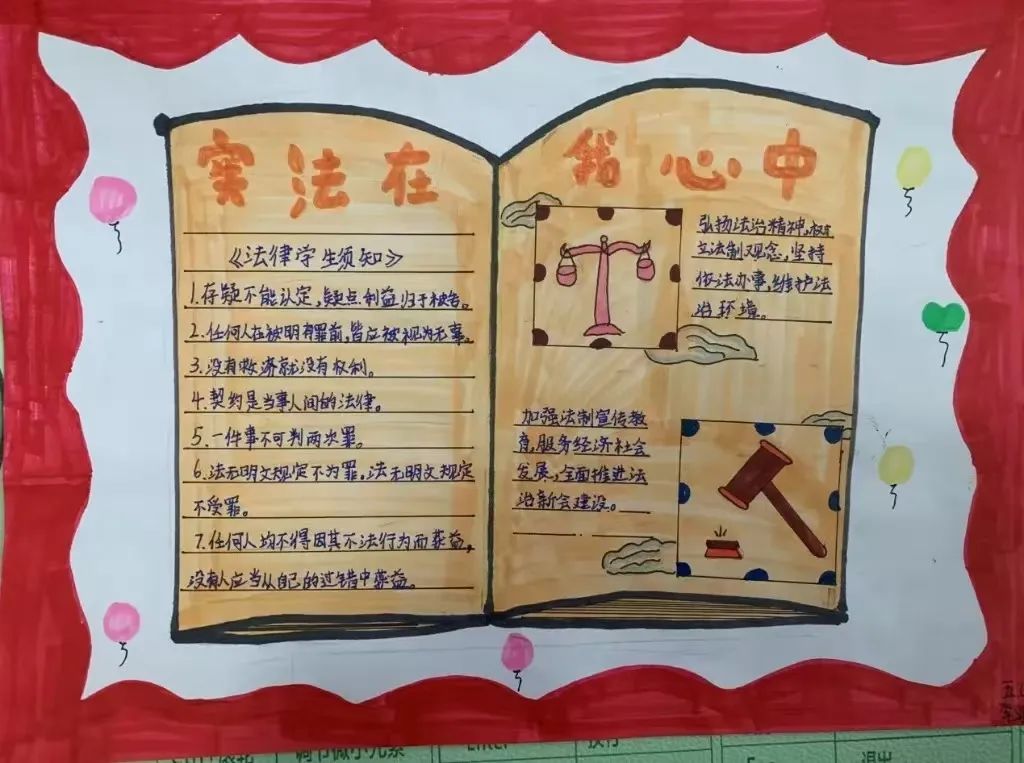 宪法在
我心中
《法律学生须知》
1.存疑不能认定,疑点利益归于被告。
2.任何人在被明有罪前,皆应被视为无辜。
3.没有救济就没有权利。
4.契约是当事人间的法律。
5.一件事不可判两次罪。
6.法无明文规定不为罪。法无明文规定
不受罪。
7.任何人均不得因其不法行为而获益,
没有人应当从自己的过错中获益。
弘扬法治精神,树
立法制观念,坚持
依法办事,维护法
治环境。
加强法制宣传教
育,服务经济社会
发展,全面推进法
治新会建设。
调节微小元素
Enter
换行
退出